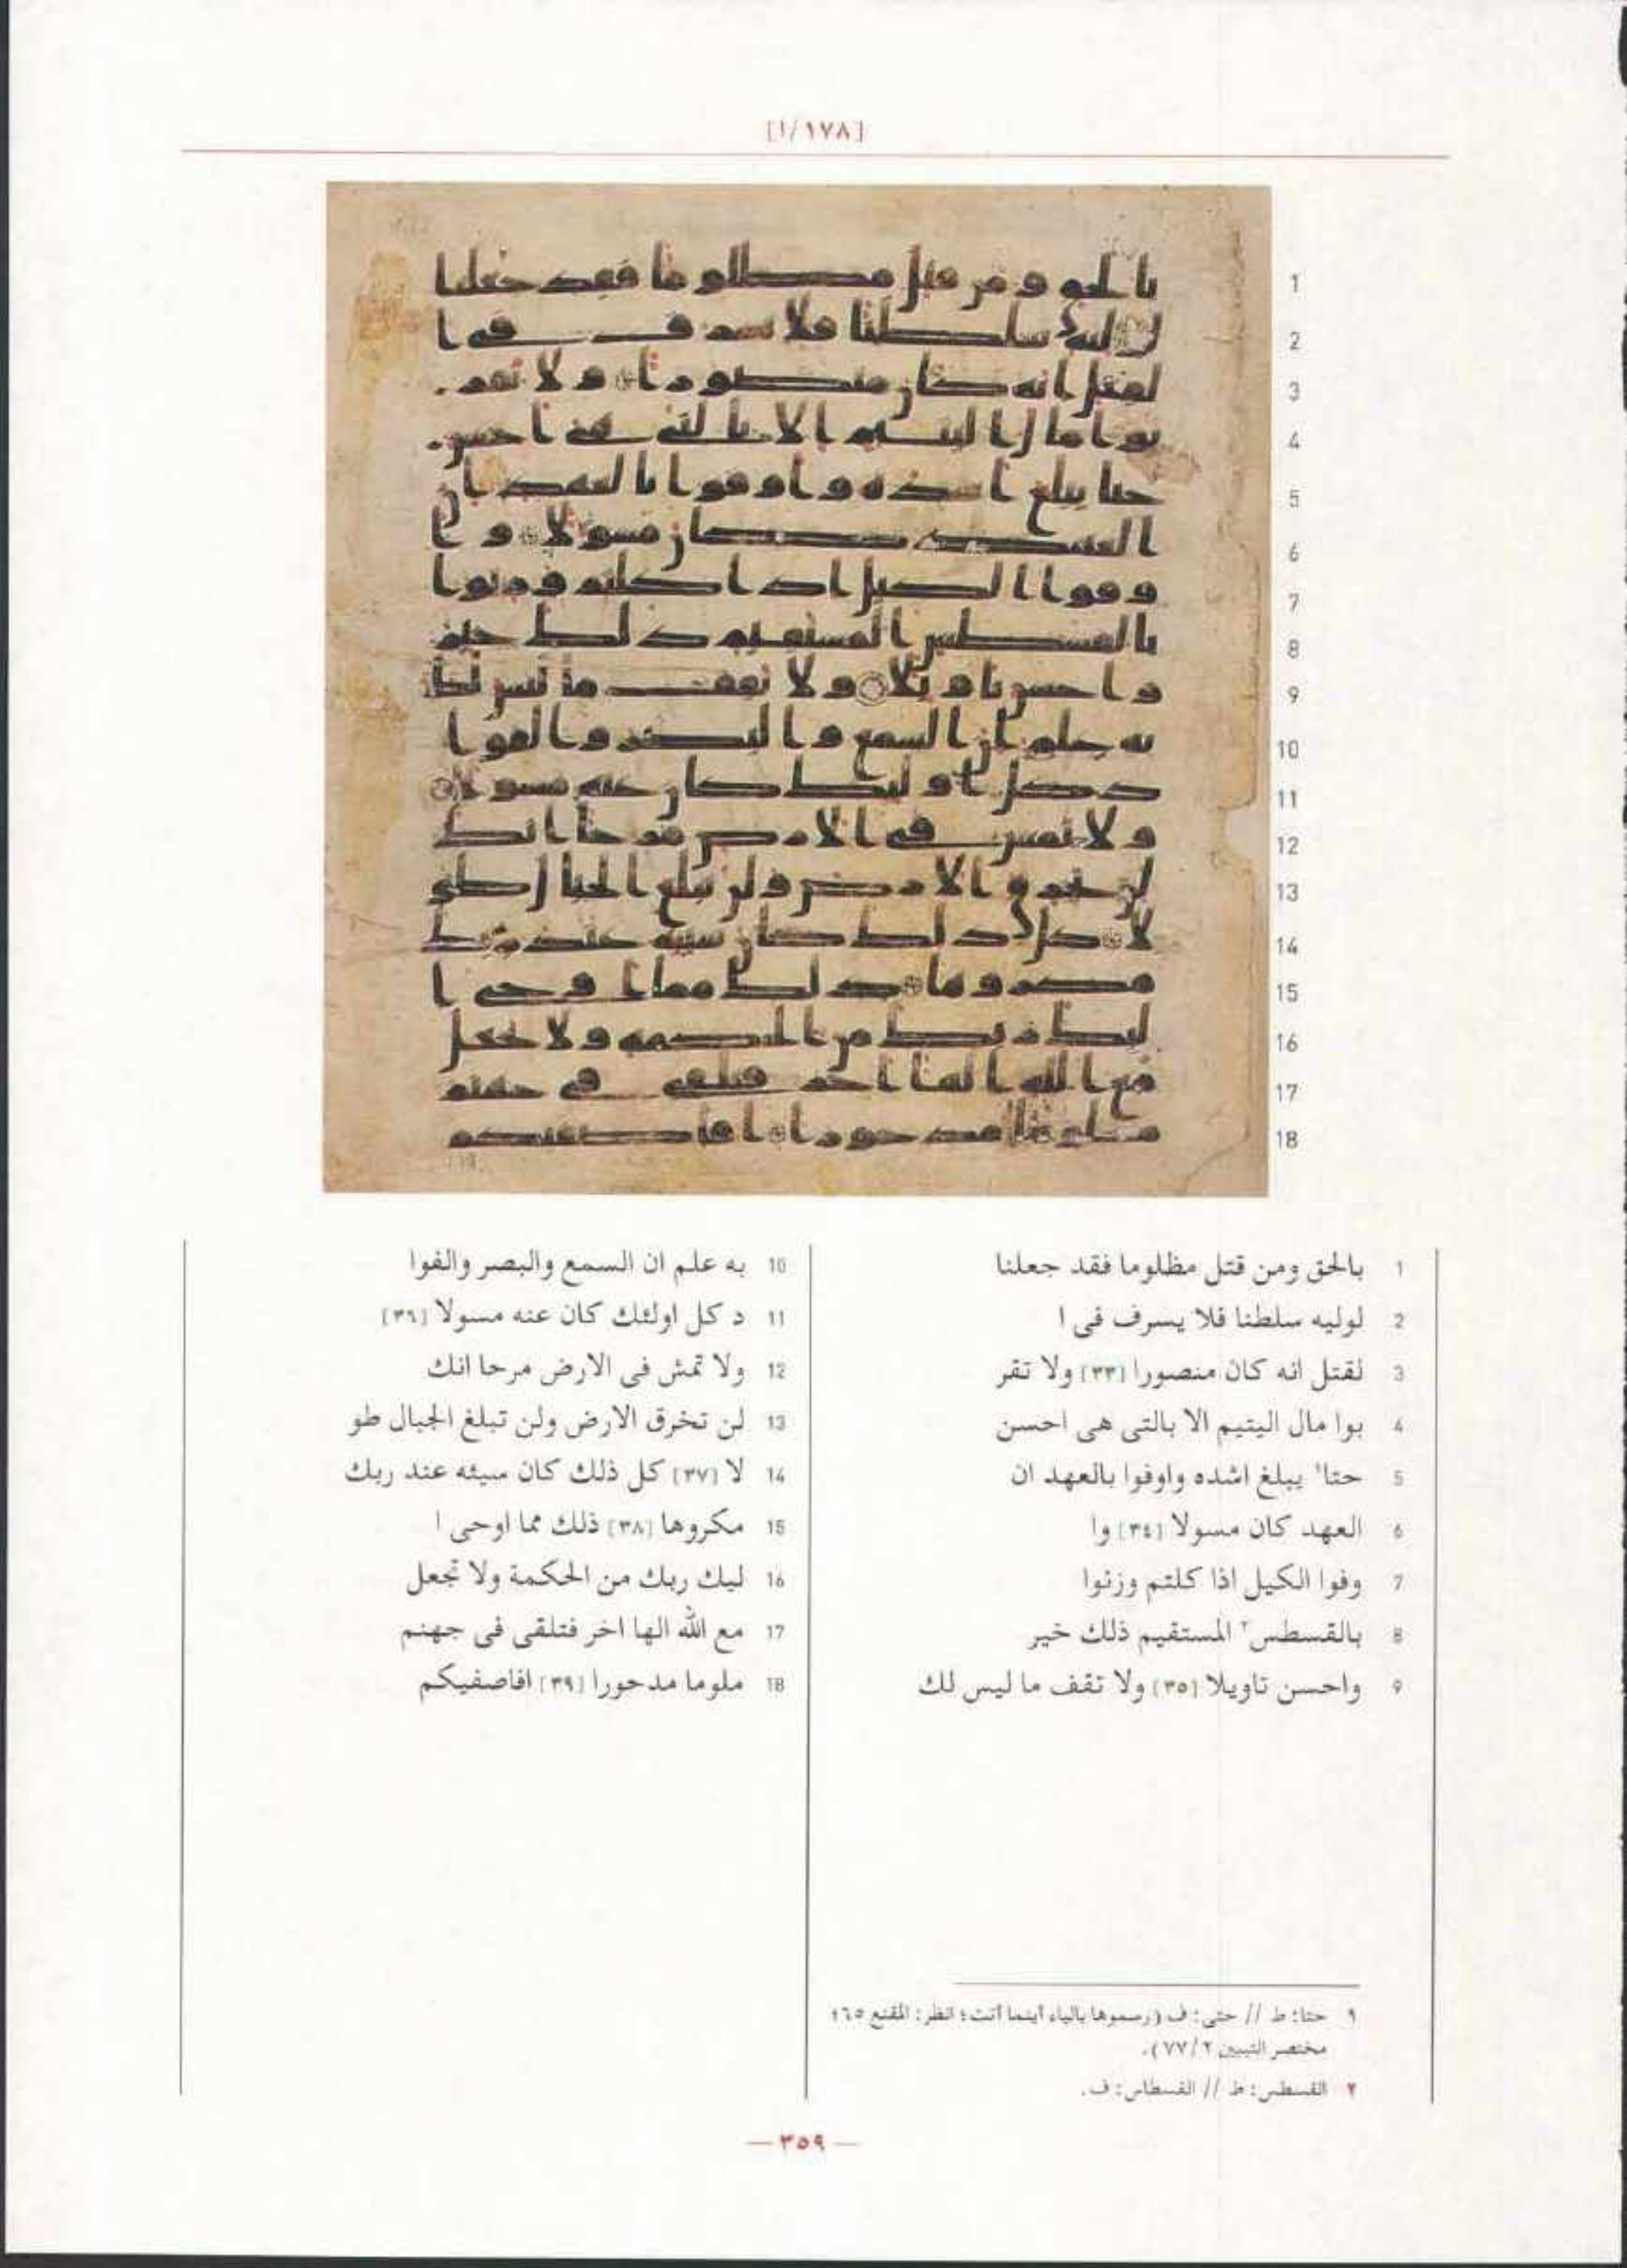 [١٧٨/ا]
1
2
3
4
5
6
7
8
9
10
11
12
13
14
15
16
17
18
1 بالحق ومن قتل مظلوما فقد جعلنا
2 لوليه سلطنا فلا يسرف فى ا
3 لقتل انه كان منصورا [٣٣] ولا تقر
4 بوا مال اليتيم الا بالتى هى احسن
5 حتا١ يبلغ اشده واوفوا بالعهد ان
6 العهد كان مسولا [٣٤] وا
7 وفوا الكيل اذا كلتم وزنوا
8 بالقسطس٢ المستقيم ذلك خير
9 واحسن تاويلا [٣٥] ولا تقف ما ليس لك
10 به علم ان السمع والبصر والفوا
11 د كل اولئك كان عنه مسولا [٣٦]
12 ولا تمش فى الارض مرحا انك
13 لن تخرق الارض ولن تبلغ الجبال طو
14 لا [٣٧] كل ذلك كان سيئه عند ربك
15 مكروها [٣٨] ذلك مما اوحى ا
16 ليك ربك من الحكمة ولا تجعل
17 مع الله الها اخر فتلقى فى جهنم
18 ملوما مدحورا [٣٩] افاصفيكم
١ حتا: ط // حتى: ف (رسموها بالياء أينما أتت؛ انظر: المقنع ٦٥؛
مختصر التبيين ٢/٧٧).
٢ القسطس: ط // القسطاس: ف.
— ٣٥٩ —